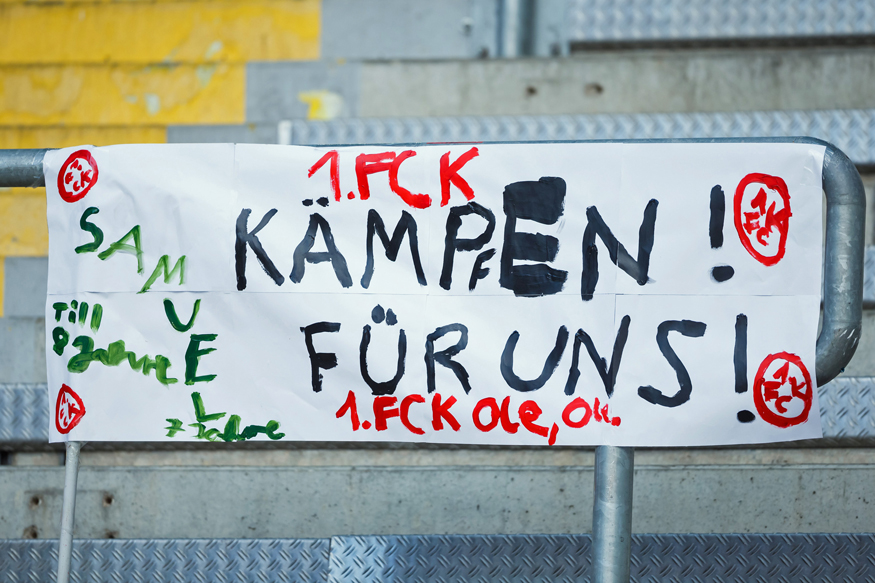 1.FCK
KÄMPFEN!
FÜR UNS!
1.FCK Ole, Ole.
SAMUEL
7 Jahre
Till
8 Jahre
1.FCK
1.FCK
1.FCK
1.FCK